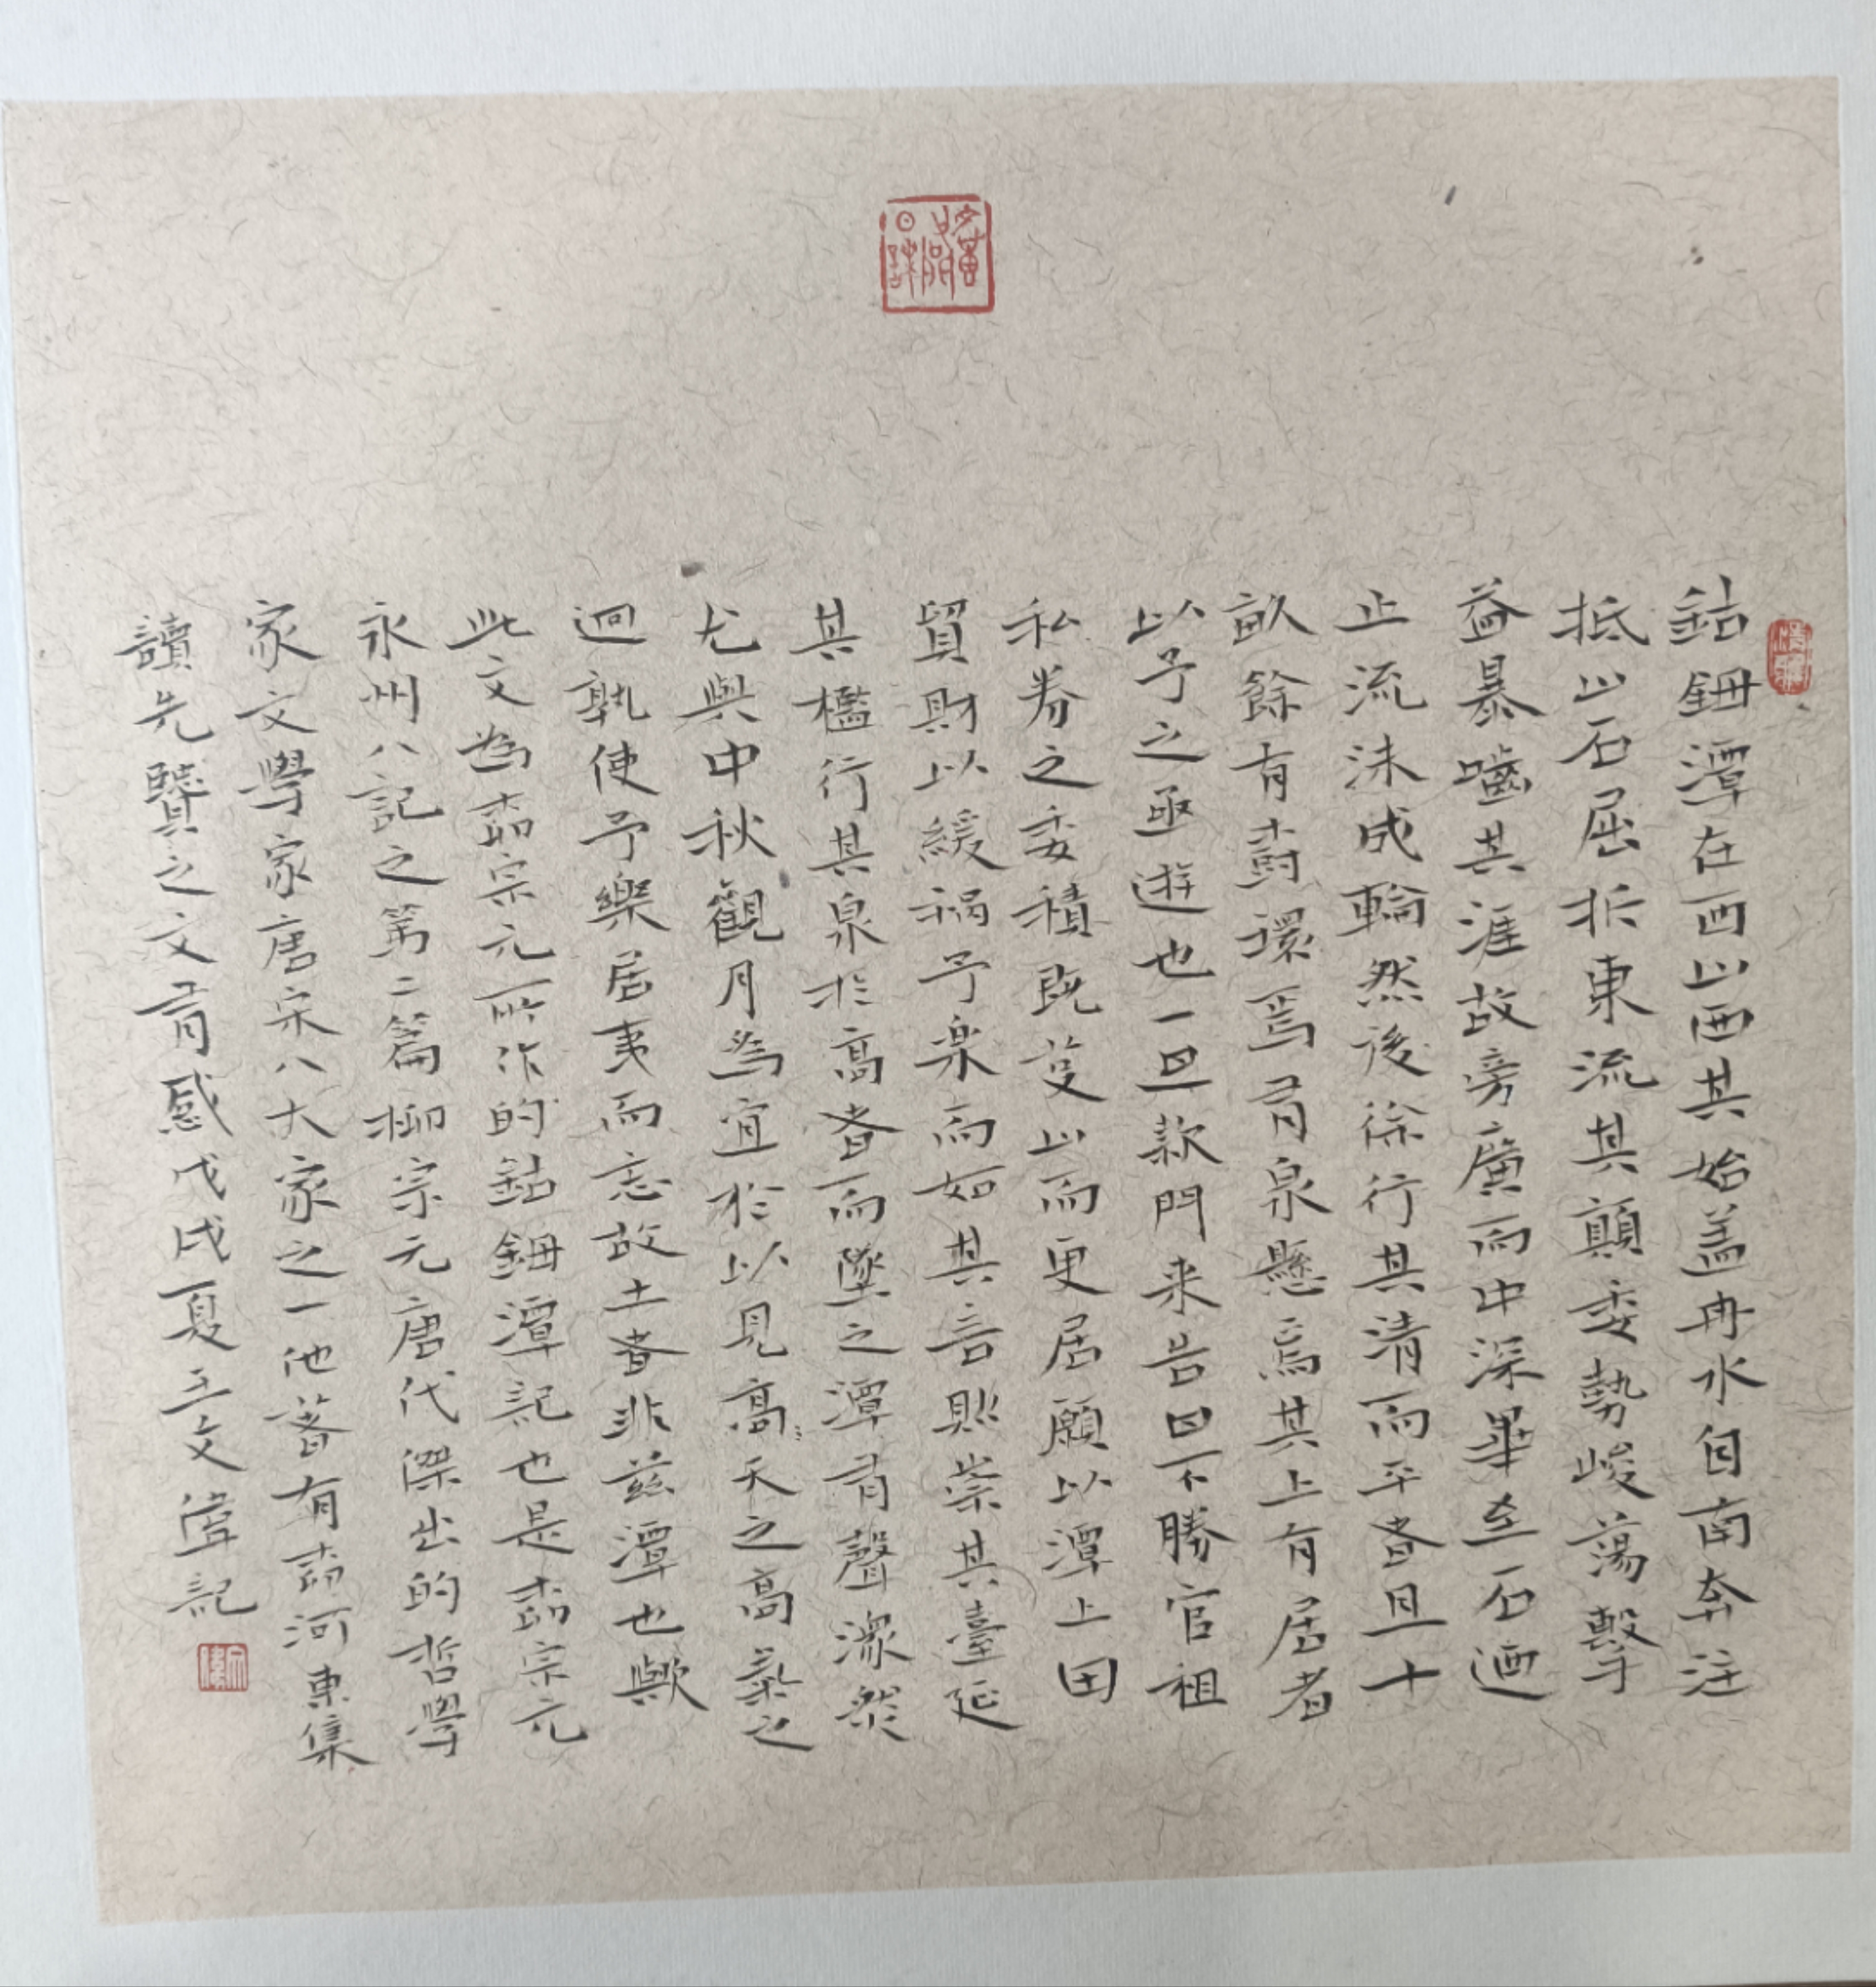 鈷鉧潭在西山西其始蓋冉水自南奔注
抵山石屈折東流其顛委勢峻蕩擊
益暴嚙其涯故旁廣而中深畢至石迺
止流沫成輪然後徐行其清而平者且十
畝餘有樹環焉有泉懸焉其上有居者
以予之亟遊也一旦款門来告曰不勝官租
私券之委積既芟山而更居願以潭上田
貿財以緩禍予樂而如其言則崇其臺延
其檻行其泉於高者而墜之潭有聲潀然
尤與中秋觀月為宜於以見高天之高氣之
迥孰使予樂居夷而忘故土者非兹潭也歟
此文為柳宗元所作的鈷鉧潭記也是柳宗元
永州八記之第二篇柳宗元唐代傑出的哲學
家文學家唐宋八大家之一他著有柳河東集
讀先賢之文有感戊戌夏王文偉記